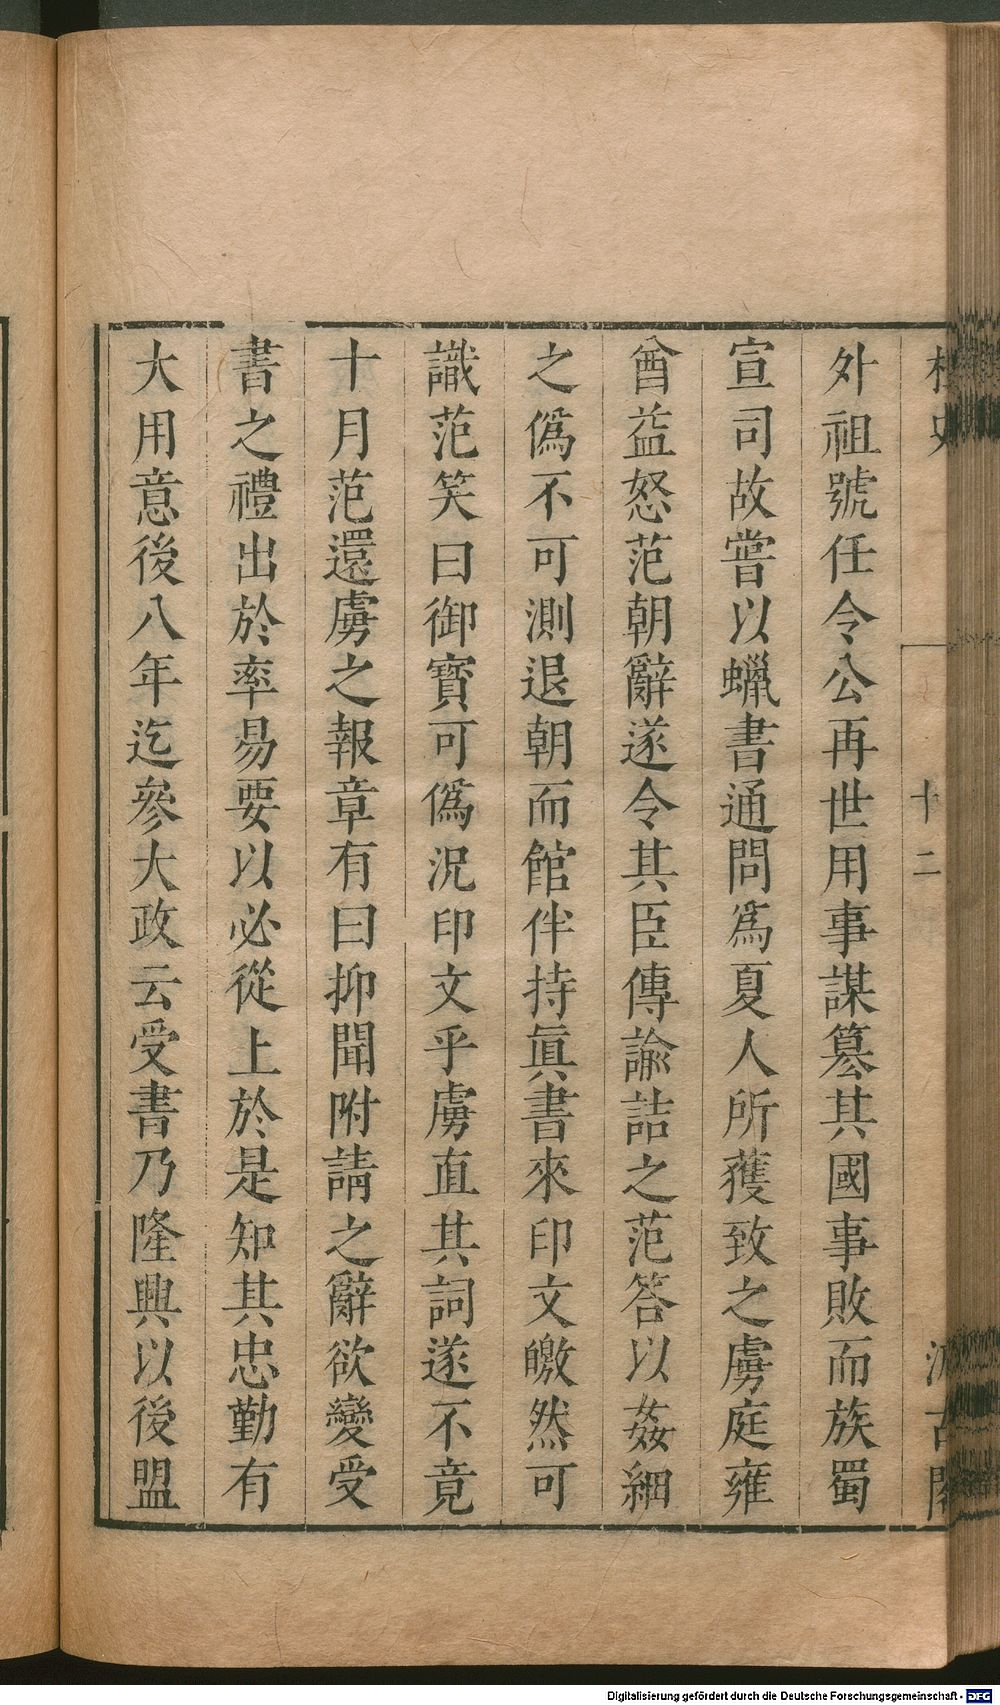 桯史
十二
汲古閣
外祖號任令公再世用事謀簒其國事敗而族蜀
宣司故嘗以蠟書通問爲夏人所獲致之虜庭雍
酋益怒范朝辭遂令其臣傳諭詰之范答以姦細
之僞不可測退朝而館伴持眞書來印文皦然可
識范笑曰御寶可僞況印文乎虜直其詞遂不竟
十月范還虜之報章有曰抑聞附請之辭欲變受
書之禮出於率易要以必從上於是知其忠勤有
大用意後八年迄參大政云受書乃隆興以後盟
Digitalisierung gefördert durch die Deutsche Forschungsgemeinschaft - DFG